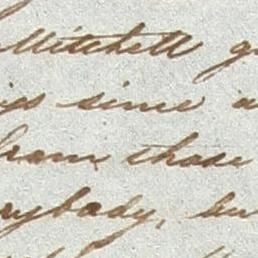 Mitchell
since a
from those
rybody, bu